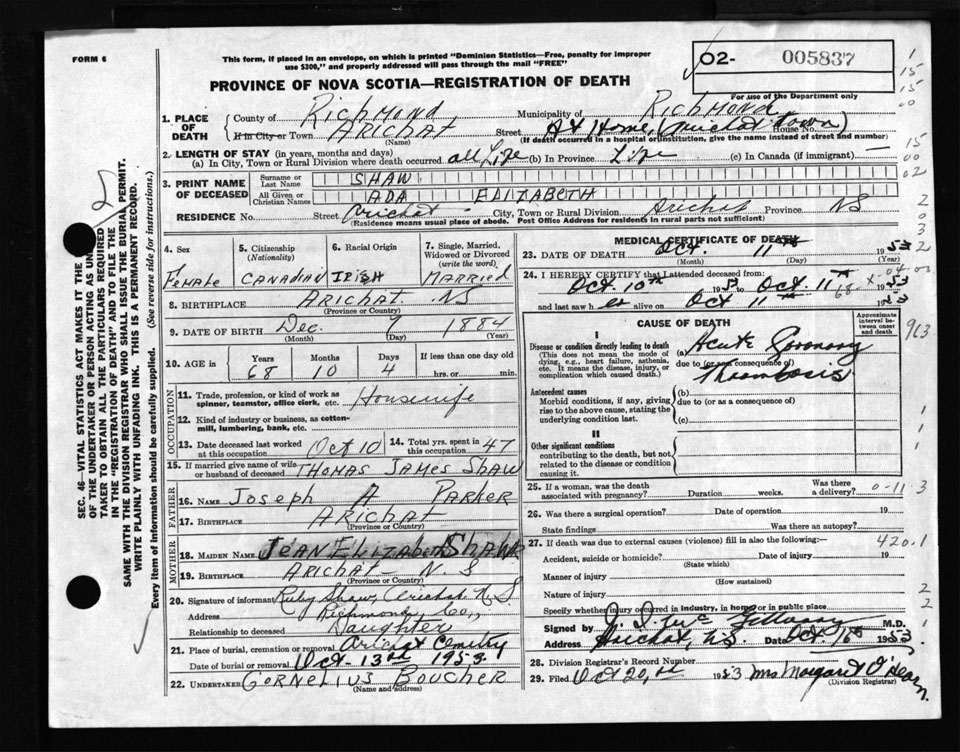 FORM 6
This form, if placed in an envelope, on which is printed "Dominion Statistics—Free, penalty for improper
use $300," and properly addressed will pass through the mail "FREE"
O2- 005837
PROVINCE OF NOVA SCOTIA—REGISTRATION OF DEATH
For use of the Department only
1. PLACE OF DEATH
County of RICHMOND Municipality of RICHMOND
If in City or Town ARICHAT Street At Home, Arichat Town House No.
(Name) (If death occurred in a hospital or institution, give the name instead of street and number)
2. LENGTH OF STAY (in years, months and days)
(a) In City, Town or Rural Division where death occurred all Life (b) In Province Life (c) In Canada (if immigrant) —
3. PRINT NAME OF DECEASED
Surname or Last Name SHAW
All Given or Christian Names ADA ELIZABETH
RESIDENCE No. Street Arichat City, Town or Rural Division Arichat Province NS
(Residence means usual place of abode. Post Office Address for residents in rural parts not sufficient)
4. Sex Female
5. Citizenship (Nationality) CANADIAN
6. Racial Origin IRISH
7. Single, Married, Widowed or Divorced (write the word) MARRIED
8. BIRTHPLACE ARICHAT NS
(Province or Country)
9. DATE OF BIRTH Dec. 7 1884
(Month) (Day) (Year)
10. AGE IN Years 68 Months 10 Days 4 If less than one day old hrs. or min.
OCCUPATION
11. Trade, profession, or kind of work as spinner, teamster, office clerk, etc. Housewife
12. Kind of industry or business, as cotton-mill, lumbering, bank, etc.
13. Date deceased last worked at this occupation Oct 10 14. Total yrs. spent in this occupation 47
15. If married give name of wife or husband of deceased THOMAS JAMES SHAW
FATHER
16. NAME JOSEPH A PARKER
17. BIRTHPLACE ARICHAT
(Province or Country)
MOTHER
18. MAIDEN NAME JEAN ELIZABETH SHAW
19. BIRTHPLACE ARICHAT N.S
(Province or Country)
20. Signature of informant Ruby Shaw, Arichat N.S
Address Richmond Co.,
Relationship to deceased Daughter
21. Place of burial, cremation or removal Arichat Cemetry
Date of burial or removal Oct - 13th 1953
22. UNDERTAKER CORNELIUS BOUCHER
(Name and address)
MEDICAL CERTIFICATE OF DEATH
23. DATE OF DEATH Oct. 11th 1953
(Month) (Day) (Year)
24. I HEREBY CERTIFY that I attended deceased from:
Oct. 10th 1953 to Oct. 11 1953
and last saw her alive on Oct 11th 1953
CAUSE OF DEATH
Approximate interval between onset and death
I
Disease or condition directly leading to death (a) Acute Coronary
(This does not mean the mode of dying, e.g., heart failure, asthenia, etc. It means the disease, injury, or complication which caused death.)
due to (or as a consequence of) Thrombosis
Antecedent causes (b)
Morbid conditions, if any, giving rise to the above cause, stating the underlying condition last.
due to (or as a consequence of)
(c)
II
Other significant conditions
contributing to the death, but not related to the disease or condition causing it.
25. If a woman, was the death associated with pregnancy? Duration weeks. Was there a delivery?
0-11-3
26. Was there a surgical operation? Date of operation 19
State findings Was there an autopsy?
27. If death was due to external causes (violence) fill in also the following:—
420.1
Accident, suicide or homicide? Date of injury 19
(State which)
Manner of injury
(How sustained)
Nature of injury
Specify whether injury occurred in industry, in home or in public place
Signed by M.D.
Address Arichat, N.S. Date Oct. 1953
28. Division Registrar's Record Number
29. Filed Oct 20, 1953 Mrs Margaret O'Hearn
(Division Registrar)
SEC. 46—VITAL STATISTICS ACT MAKES IT THE
OF THE UNDERTAKER OR PERSON ACTING AS UN
TAKER TO OBTAIN ALL THE PARTICULARS REQUIRED
IN THE "REGISTRATION OF DEATH" AND TO FILE THE
SAME WITH THE DIVISION REGISTRAR WHO SHALL ISSUE THE BURIAL PERMIT.
WRITE PLAINLY WITH UNFADING INK. THIS IS A PERMANENT RECORD.
Every item of information should be carefully supplied. (See reverse side for instructions.)